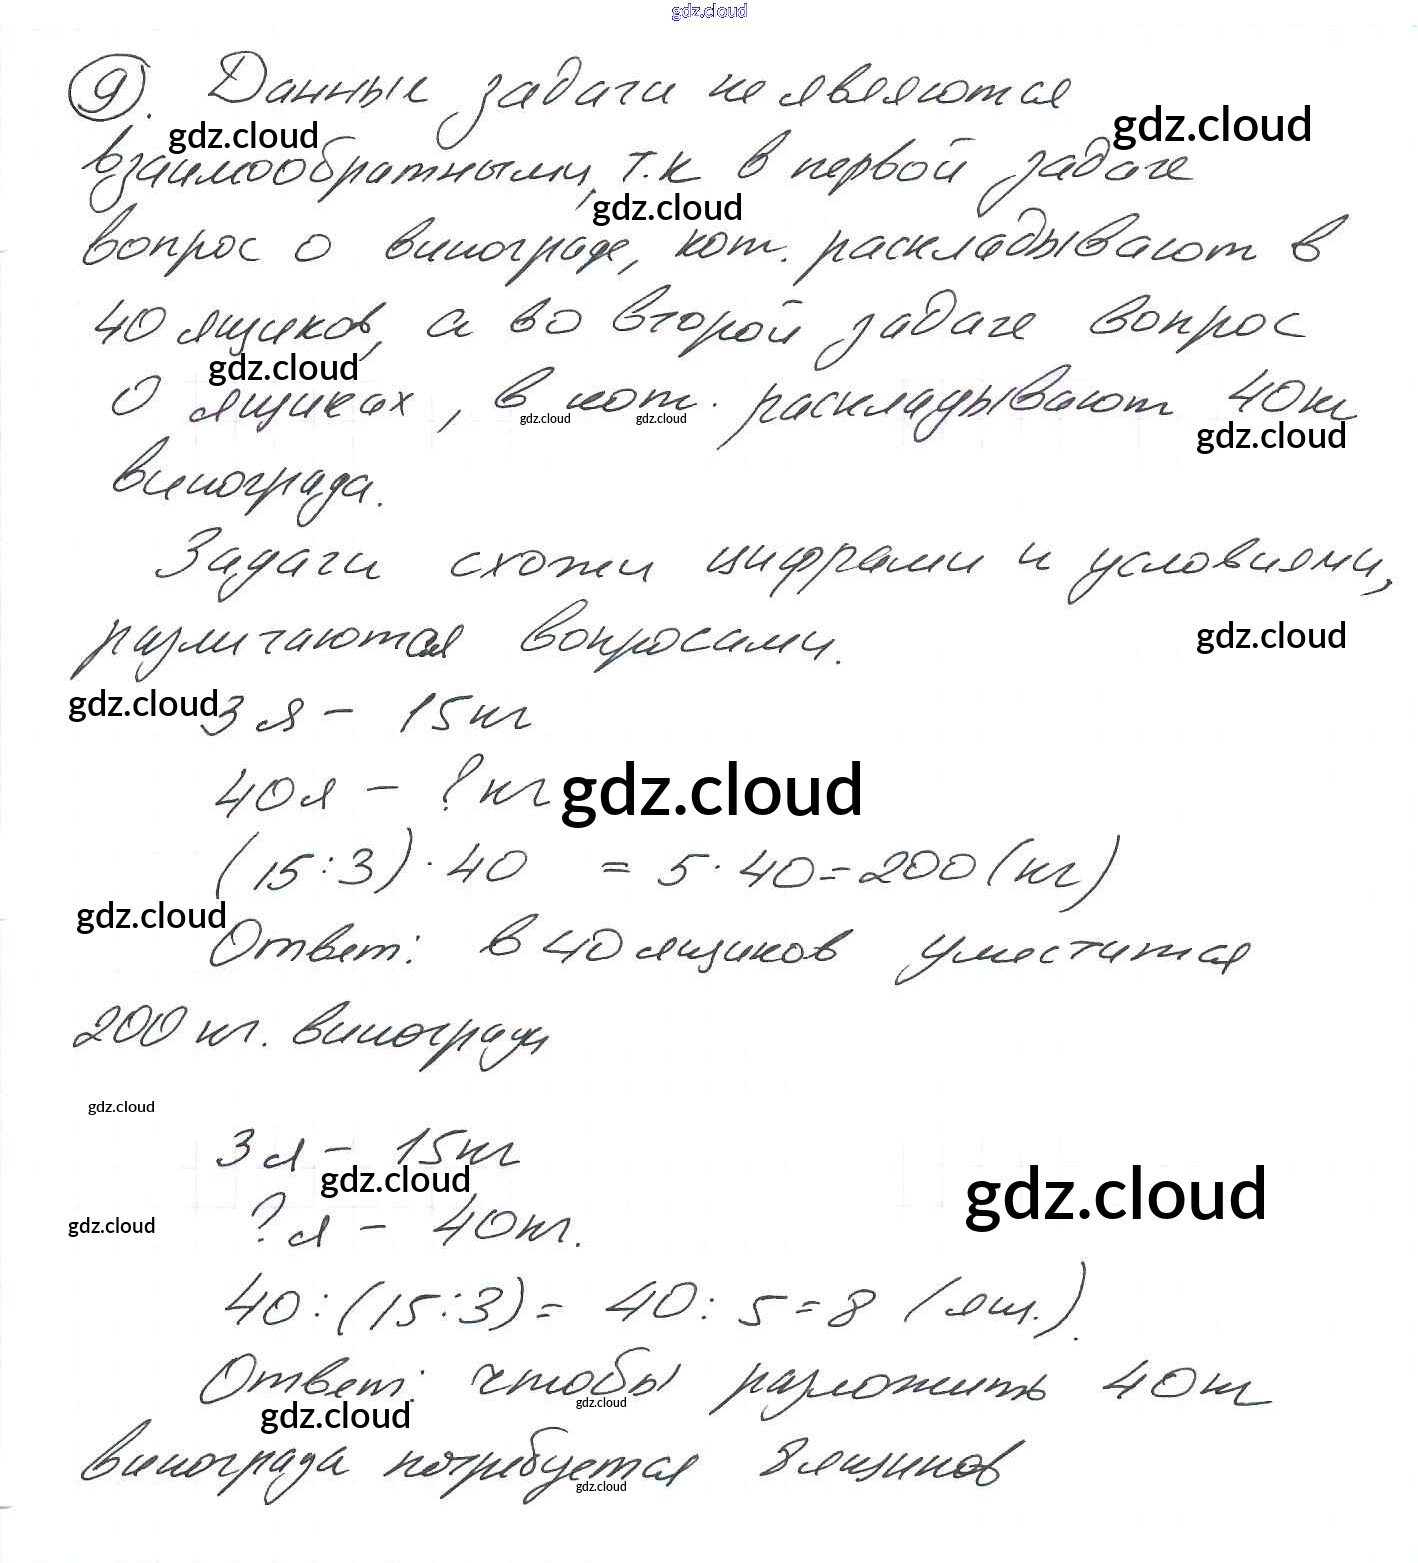 gdz.cloud
9. Данные задачи не являются
gdz.cloud gdz.cloud
взаимообратными, т.к в первой задаче
gdz.cloud
вопрос о винограде, кот. раскладывают в
40 ящиков, а во второй задаче вопрос
gdz.cloud
о ящиках, в кот. раскладывают 40кг
gdz.cloud gdz.cloud gdz.cloud
винограда.
Задачи схожи цифрами и условиями,
различаются вопросами.
gdz.cloud
gdz.cloud 3 я - 15кг
40я - ? кг gdz.cloud
(15:3)·40 = 5·40=200(кг)
gdz.cloud
Ответ: в 40 ящиков уместится
200 кг. винограда
gdz.cloud
3я - 15кг
gdz.cloud gdz.cloud
gdz.cloud ?я - 40кг.
40:(15:3)= 40:5=8 (ящ.).
Ответ: чтобы разложить 40кг
gdz.cloud gdz.cloud
винограда потребуется 8 ящиков
gdz.cloud